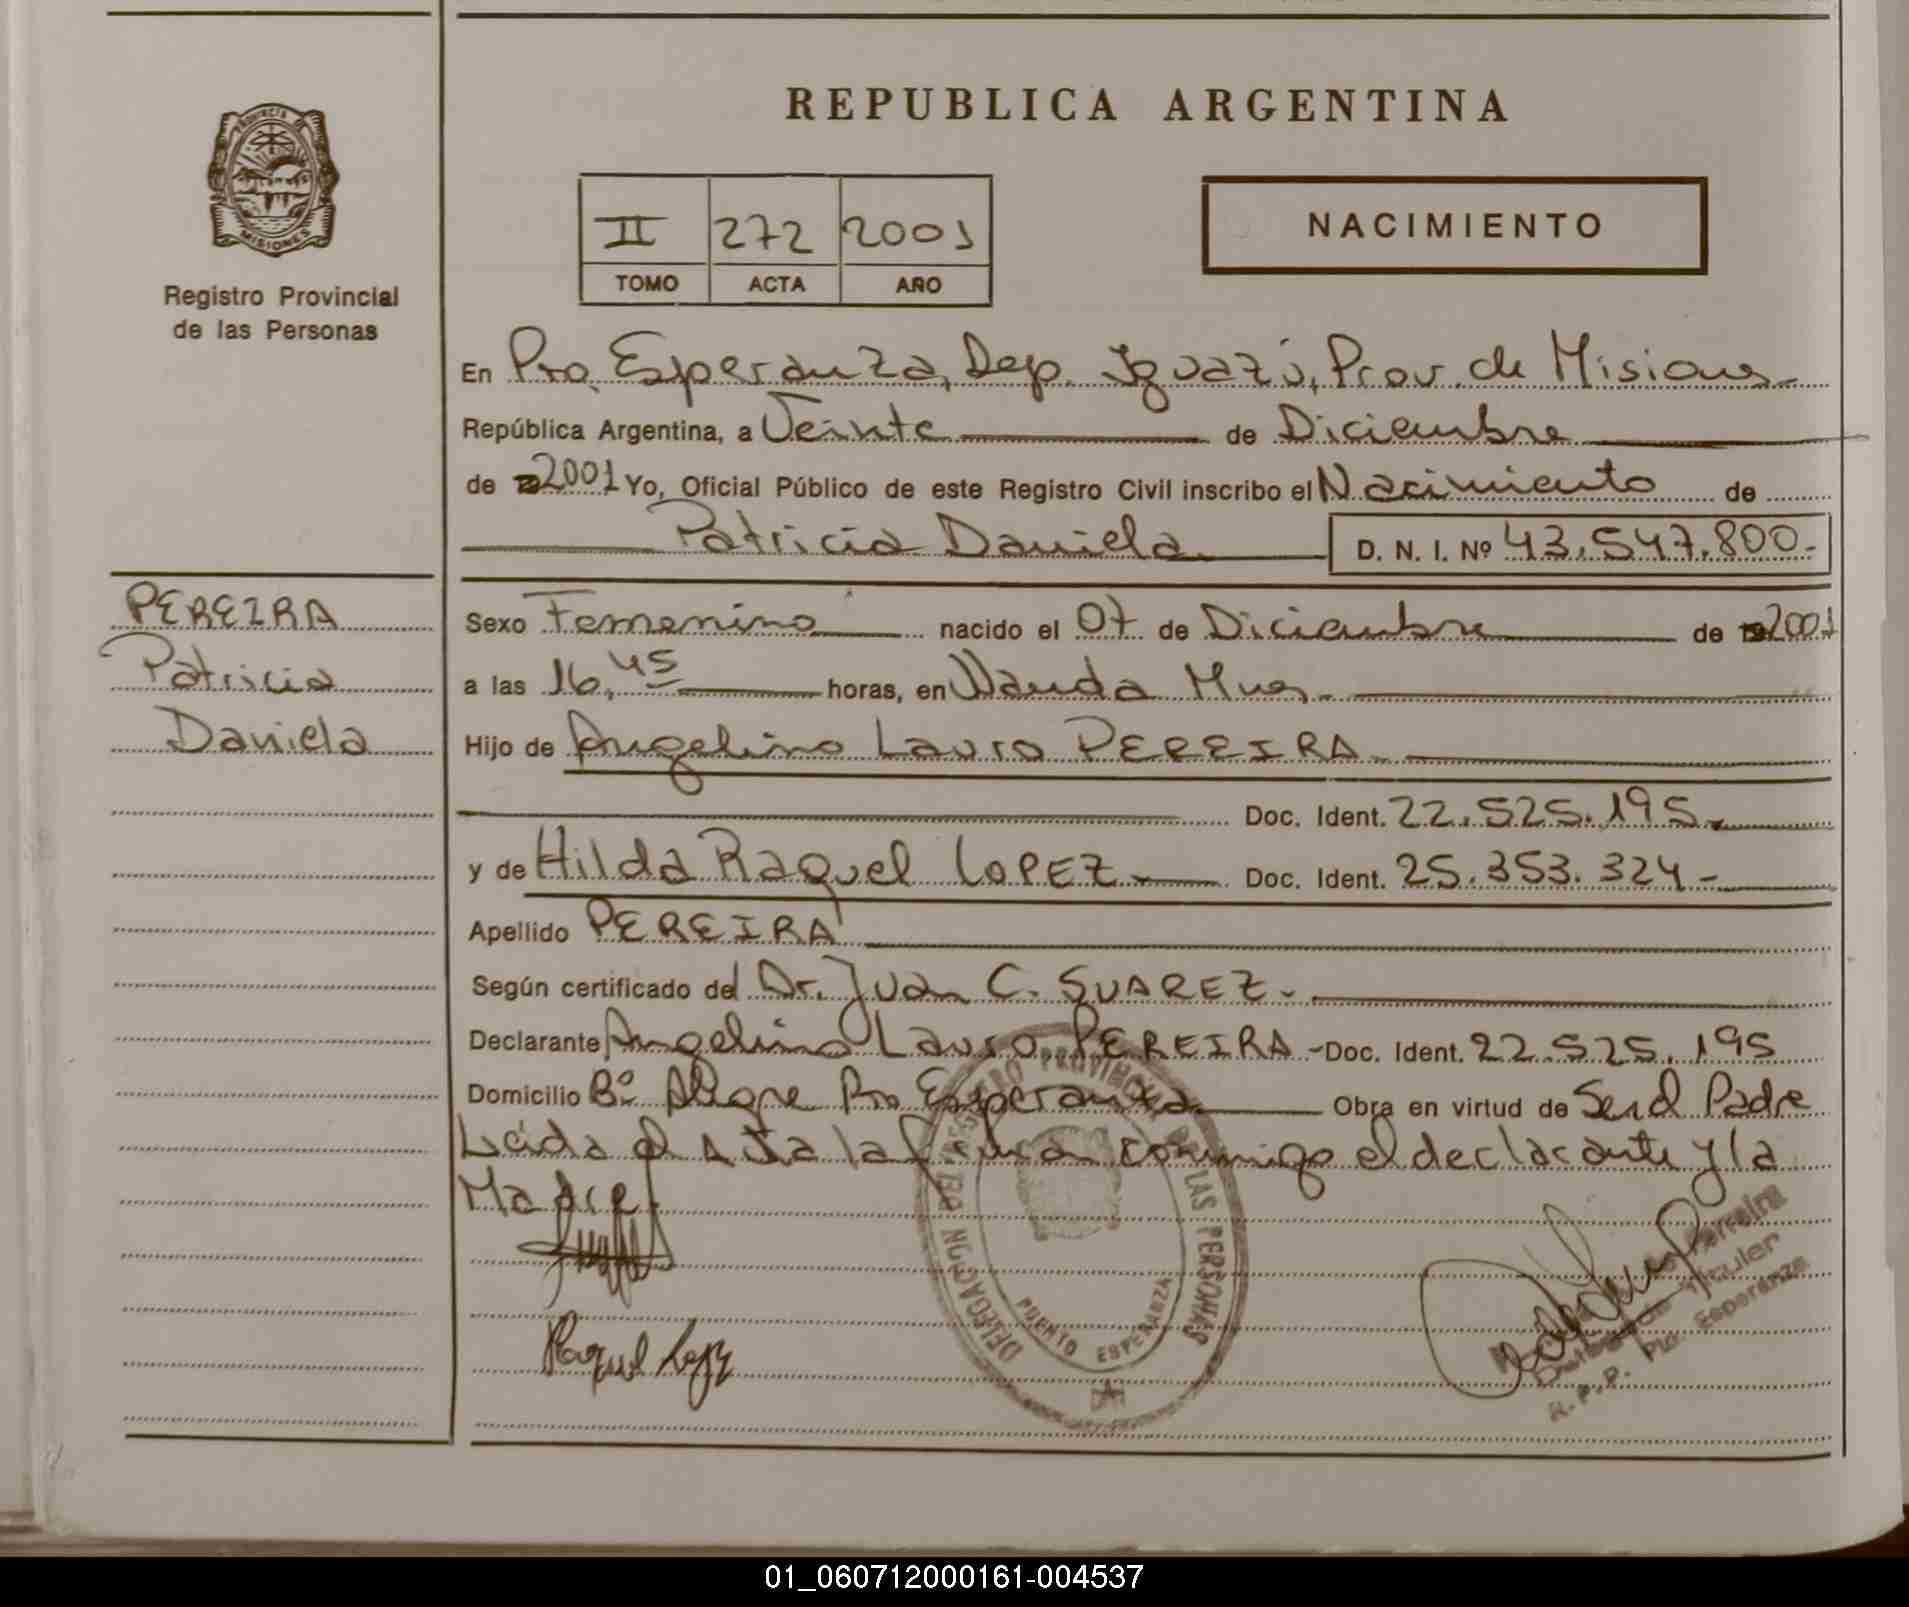 REPUBLICA ARGENTINA
PROVINCIA
MISIONES
Registro Provincial
de las Personas
II 272 2001
TOMO ACTA AÑO
NACIMIENTO
En Pto. Esperanza, Dep. Iguazú, Prov. de Misiones
República Argentina, a Veinte de Diciembre
de 2001 Yo, Oficial Público de este Registro Civil inscribo el Nacimiento de
Patricia Daniela D. N. I. Nº 43.547.800-
PEREIRA
Patricia
Daniela
Sexo Femenino nacido el 07 de Diciembre de 2001
a las 16,45 horas, en Wanda Mnes.
Hijo de Angelino Lauro PEREIRA
Doc. Ident. 22.525.195-
y de Hilda Raquel LOPEZ- Doc. Ident. 25.353.324-
Apellido PEREIRA
Según certificado del Dr. Juan C. SUAREZ-
Declarante Angelino Lauro PEREIRA- Doc. Ident. 22.525.195
Domicilio Bº Alegre Pto Esperanza Obra en virtud de Ser el Padre
Leída el Acta la firman conmigo el declarante y la
Madre.
DELEGACION DEL REGISTRO PROVINCIAL DE LAS PERSONAS
PUERTO ESPERANZA
Raquel Lopez
Ferreira
Delegado Titular
R.P.P. Pto. Esperanza
01_060712000161-004537